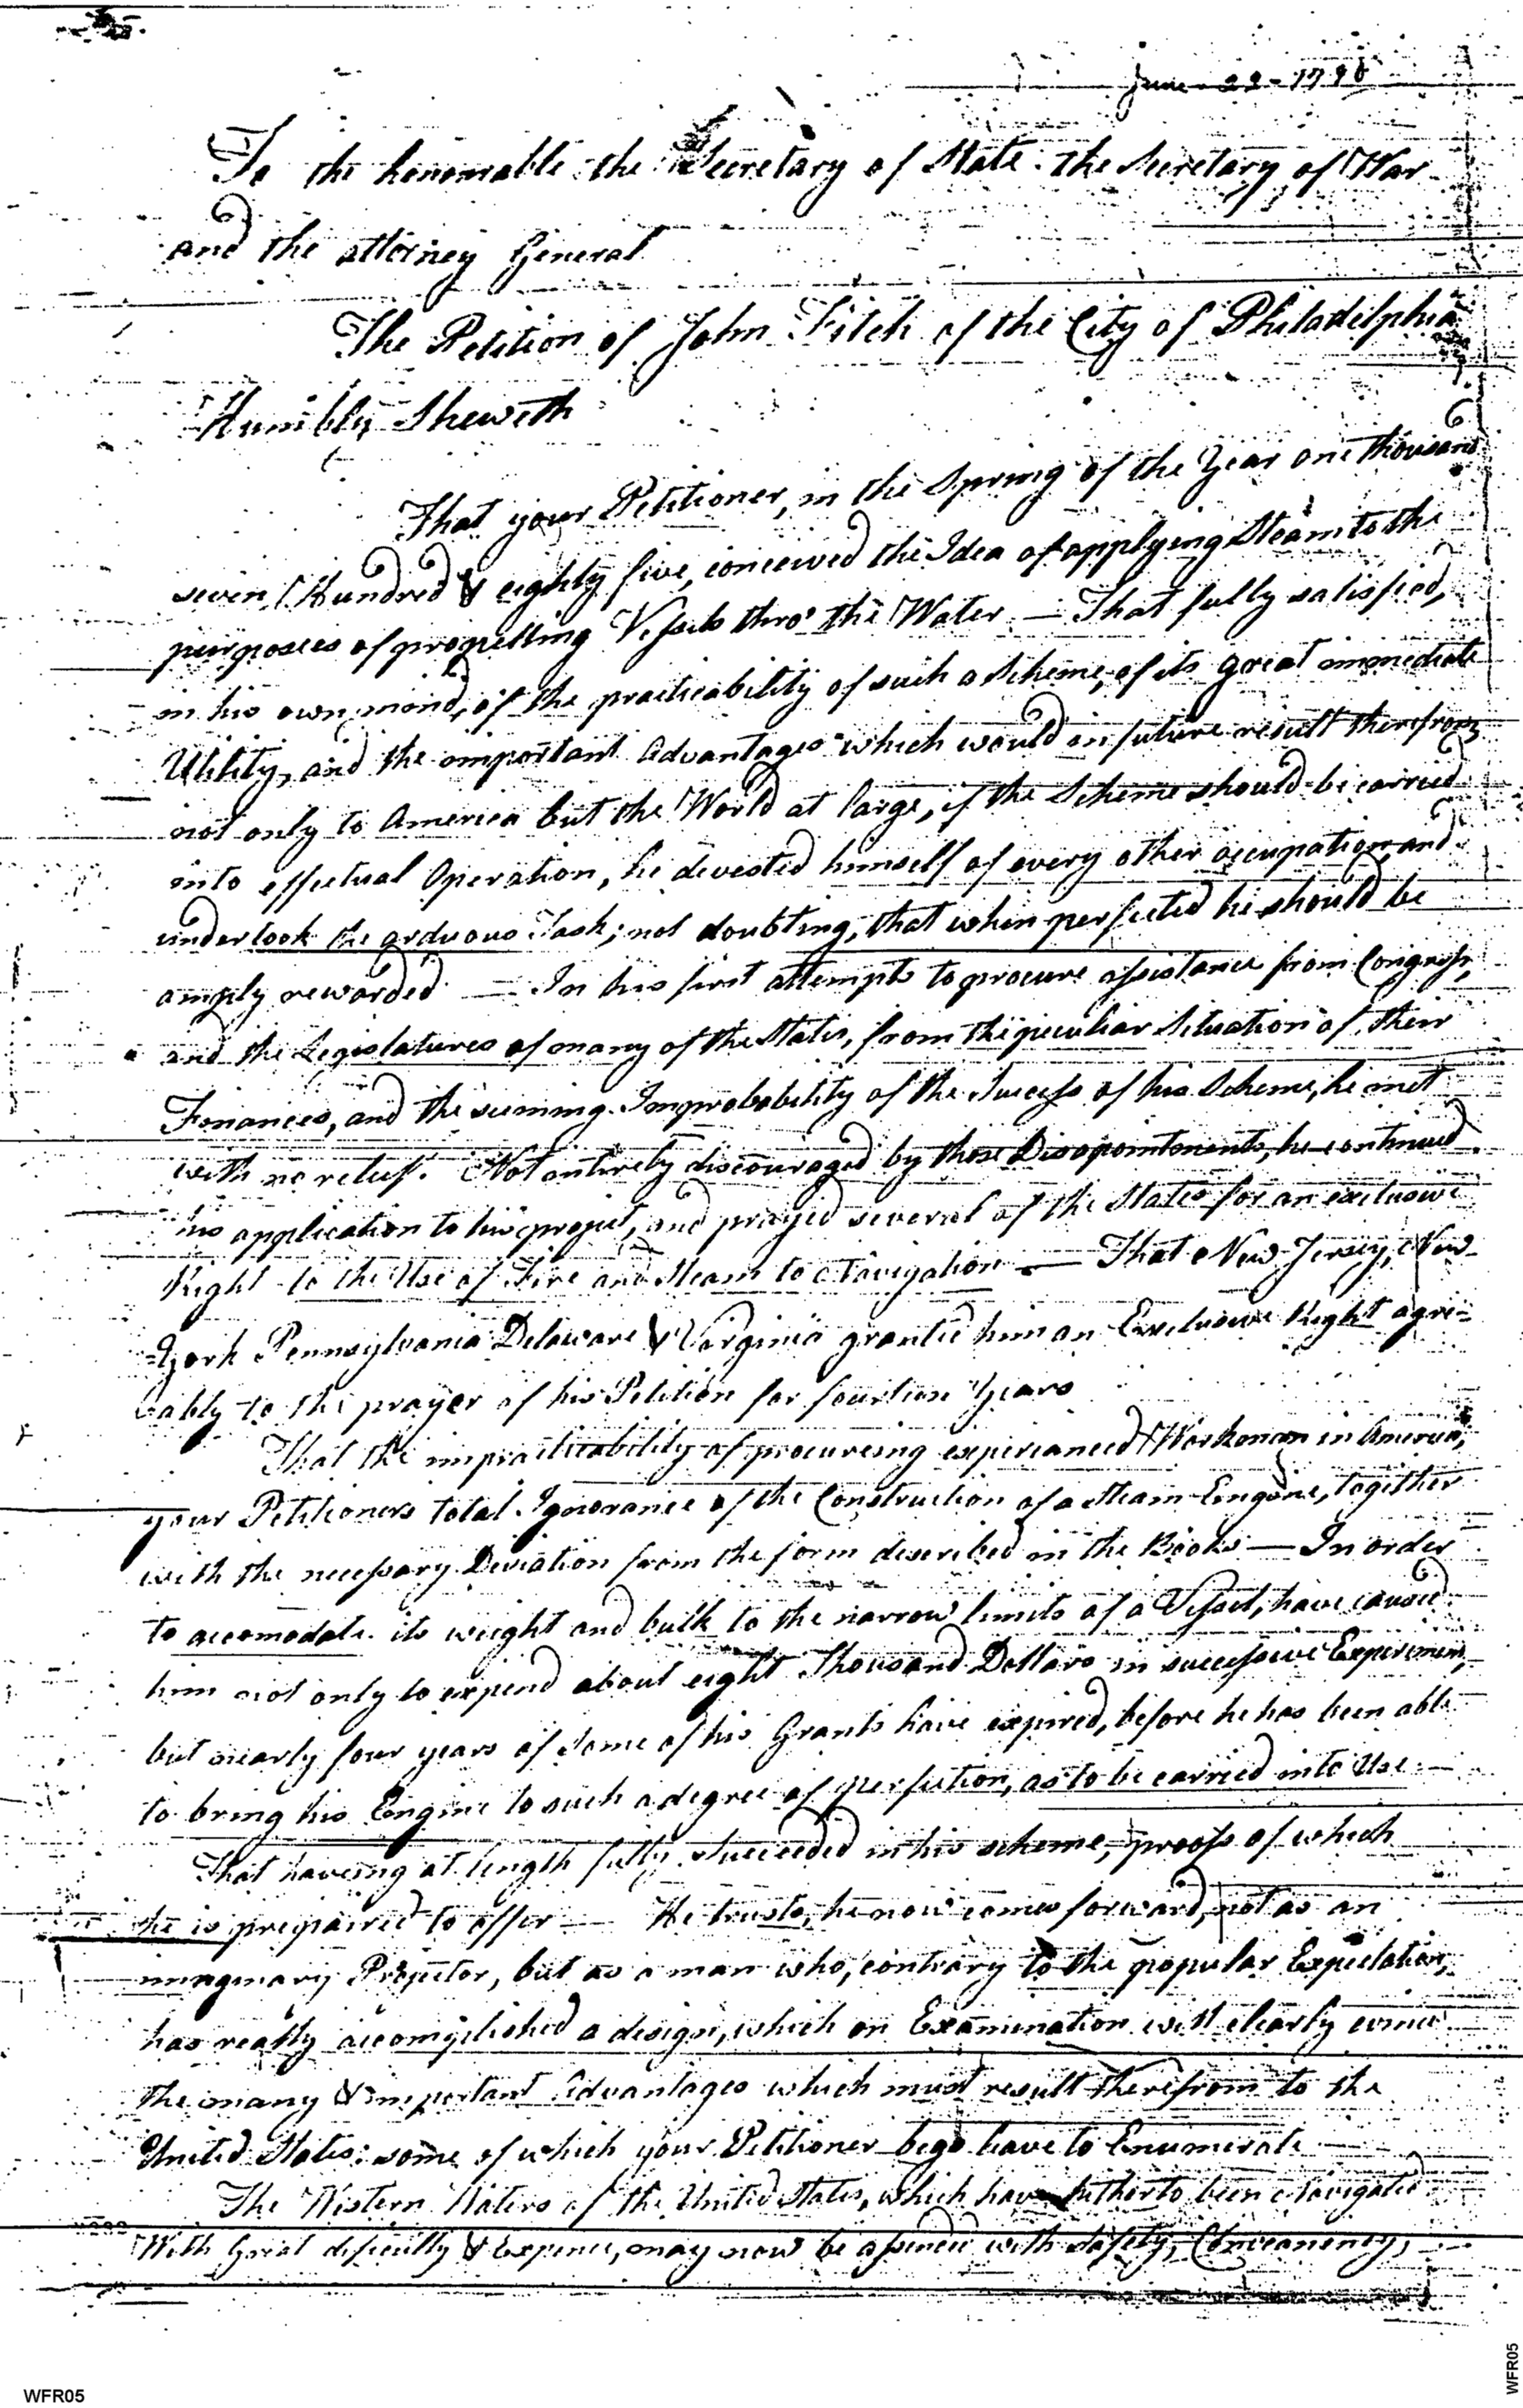 June 22 - 1790
To the honourable the Secretary of State the Secretary of War
and the attorney General
The Petition of John Fitch of the City of Philadelphia
Humbly Sheweth
That your Petitioner, in the Spring of the Year one thousand
seven Hundred & eighty five, conceived the Idea of applying Steam to the
purposees of propelling Vessels thro' the Water — That fully satisfied,
in his own mind, of the practicability of such a Scheme, of its great immediate
Utility, and the important Advantages which would in future result therefrom,
not only to America but the World at large, if the Scheme should be carried
into effectual Operation, he devested himself of every other occupation, and
undertook the arduous Task; not doubting, that when perfected he should be
amply rewarded — In his first attempts to procure assistance from Congress,
and the Legislatures of many of the States, from the peculiar Situation of their
Finances, and the seeming Improbability of the Success of his Scheme, he met
with no relief. Not entirely discouraged by these Disapointments, he continued
his application to his project, and prayed several of the States for an exclusive
Right to the Use of Fire and Steam to Navigation — That New Jersey, New-
=York Pennsylvania Delaware & Virginia granted him an Exclusive Right agre=
eably to the prayer of his Petition for fourteen Years
That the impracticability of procureing experianced Workmen in America,
your Petitioners total Ignorance of the Construction of a Steam-Engine, together
with the necessary Deviation from the form described in the Books — In order
to accomodate its weight and bulk to the narrow limits of a Vessel, have caused
him not only to expend about eight Thousand Dollars in successive Experiments,
but nearly four years of some of his Grants have expired, before he has been able
to bring his Engine to such a degree of perfection, as to be carried into Use —
That haveing at length fully succeeded in his scheme, proofs of which
he is prepaired to offer — He trusts, he now comes forward, not as an
imaginary Projector, but as a man who, contrary to the popular Expectation,
has really accomplished a design, which on Examination will clearly evince
the many & important Advantages which must result therefrom to the
United States; some of which your Petitioner begs leave to Enumerate
The Western Waters of the United States, which have hitherto been Navigated
With Great dificulty & Expence, may now be assended with safety, Conveanency,
WFR05
WFR05